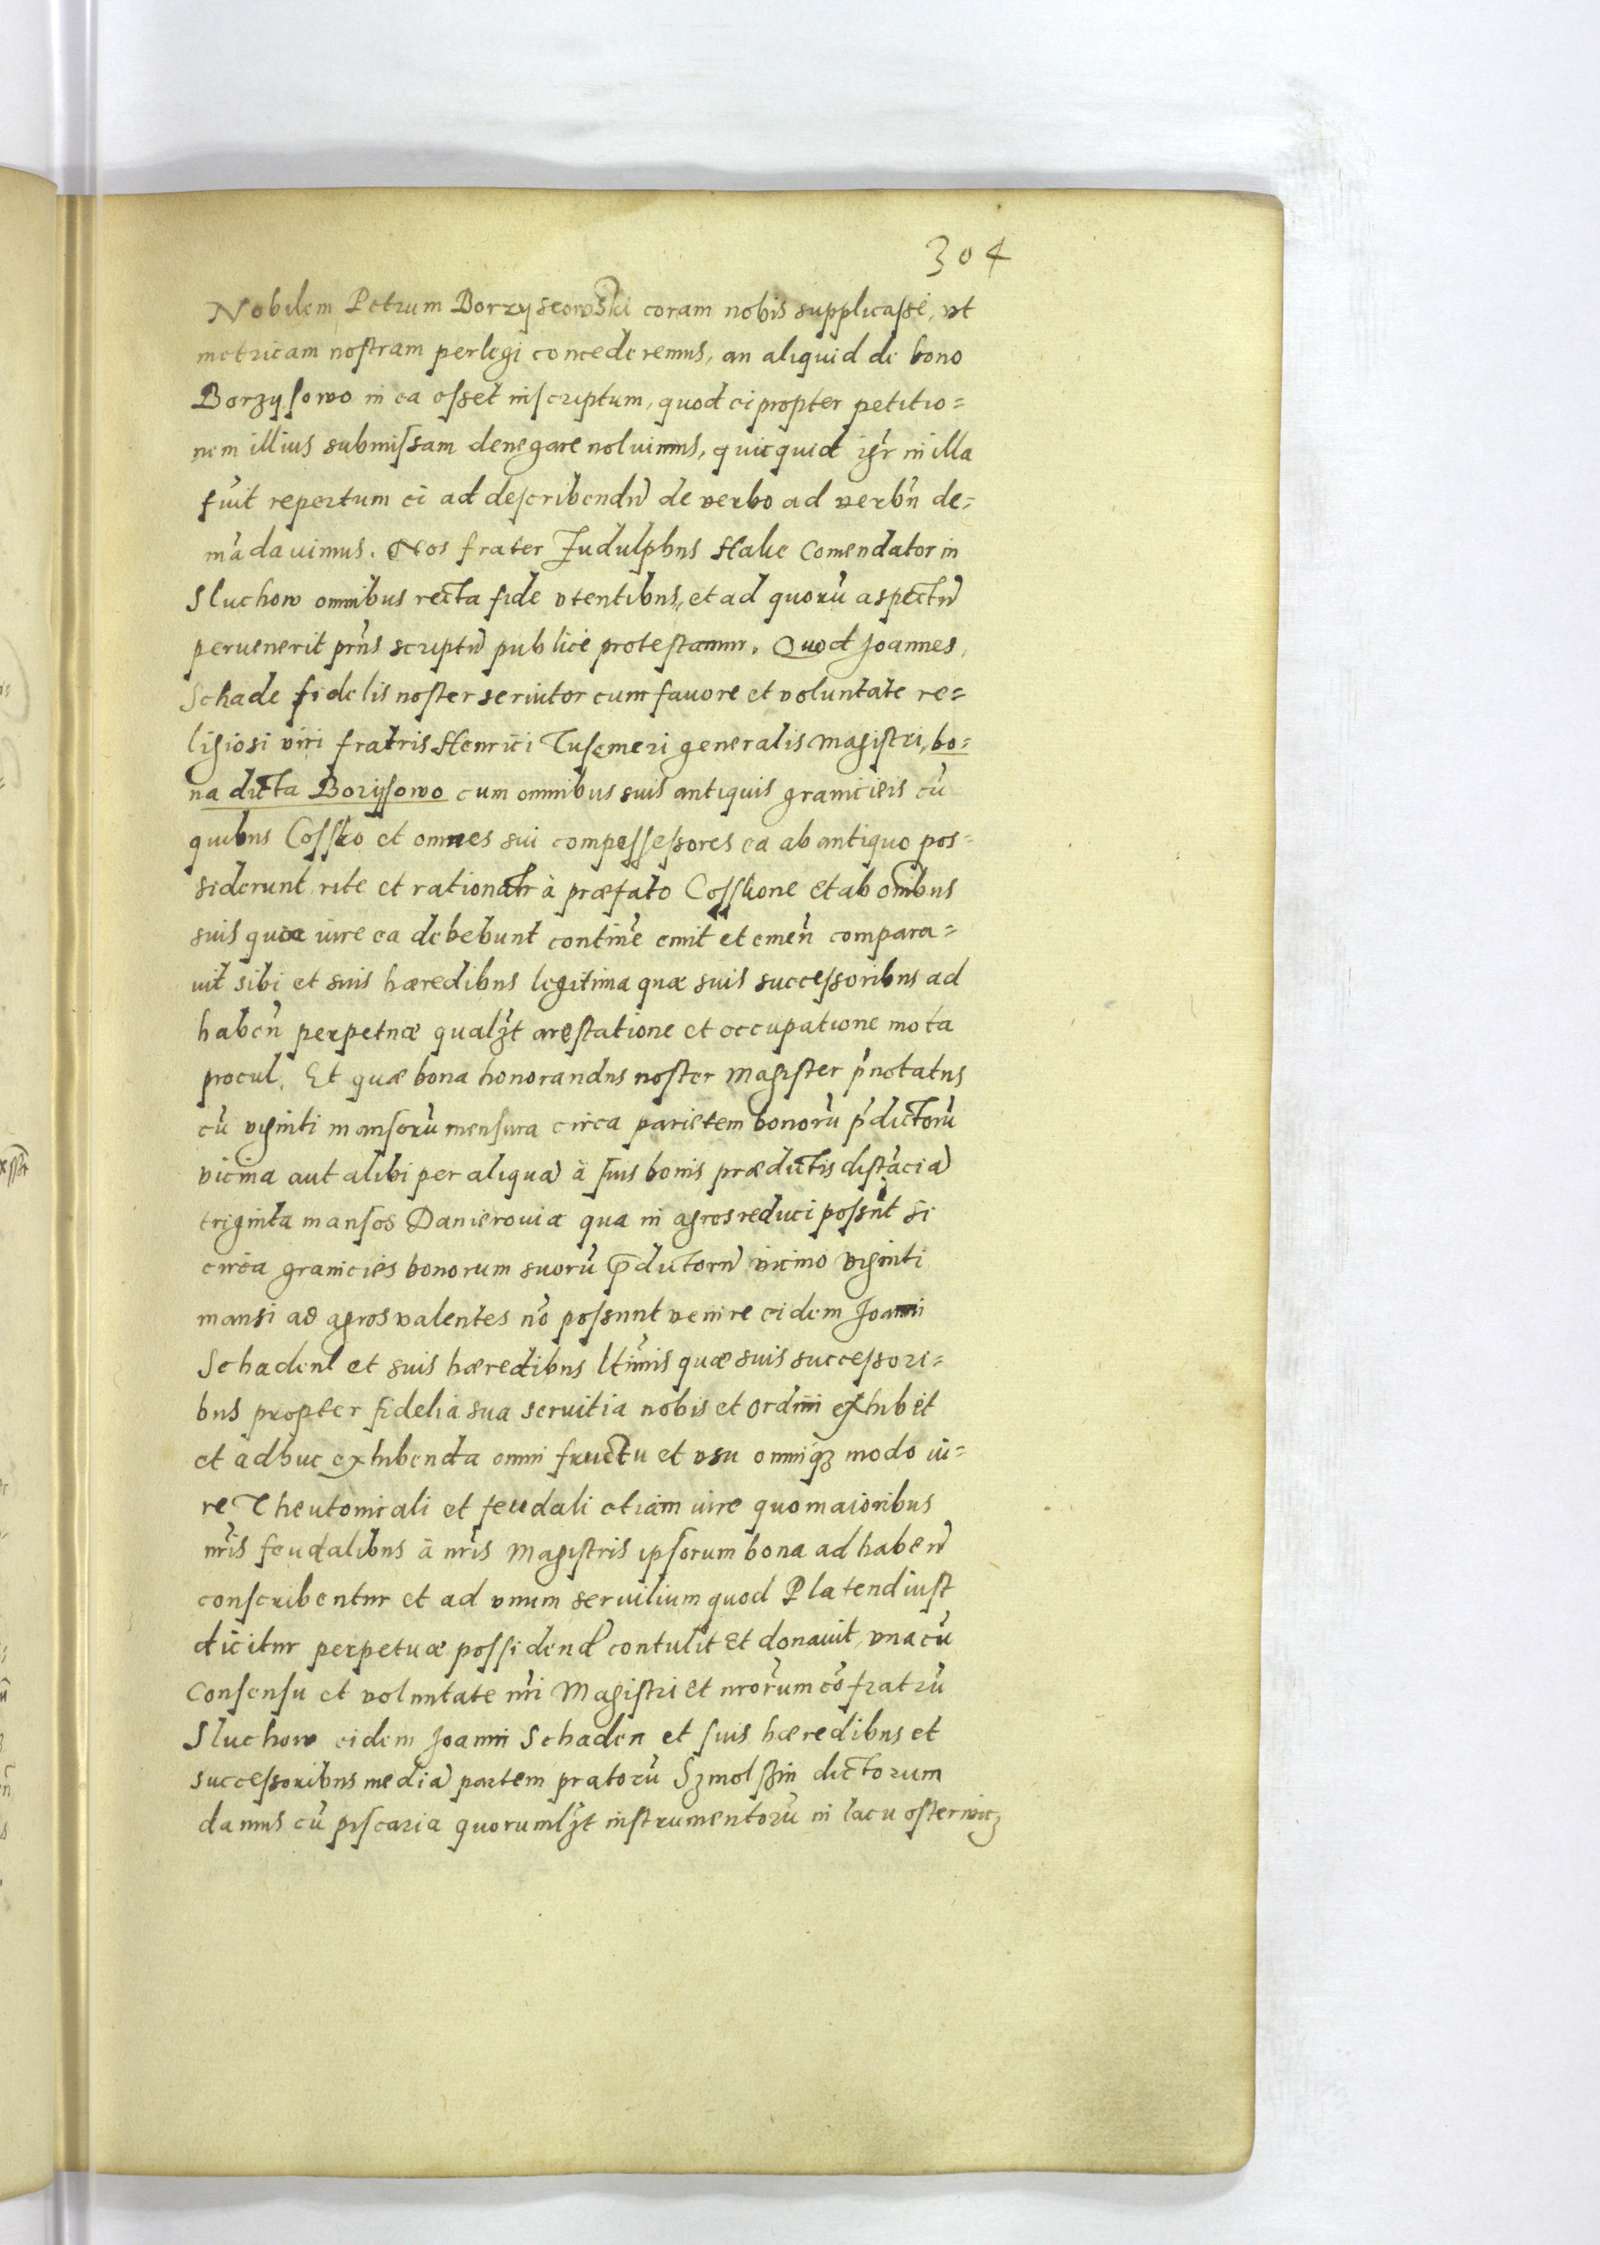 304
Nobilem Petrum Borzyseowski coram nobis supplicasse, vt
metricam nostram perlegi concederemus, an aliquid de bono
Borzysowo in ea esset inscriptum, quod ei propter petitio=
nem illius submissam denegare noluimus, quicquid igr in illa
fuit repertum ei ad describendū de verbo ad verbū de=
mādauimus. Nos frater Judulphus Hake Comendator in
Sluchow omnibus recta fide vtentibus, et ad quorū aspectū
peruenerit prns scriptū publice protestamur. Quod Joannes,
Schade fidelis noster seruitor cum fauore et voluntate re=
ligiosi viri fratris Henrici Tusemeri generalis Magistri, bo=
na dicta Borzysowo cum omnibus suis antiquis granicieis cū
quibus Cossko et omnes sui compossessores ea ab antiquo pos=
siderunt rite et rationabr à præfato Cosskone et ab omnibus
suis quæ iure ea debebunt contine emit et emen compara=
uit sibi et suis hæredibus legitima quæ suis successoribus ad
haben perpetuæ qualzt arestatione et occupatione mota
procul. Et quæ bona honorandus noster Magister pnotatus
cū viginti mansorū mensura circa parietem bonorū pdictorū
vicina aut alibi per aliquā à suis bonis prædictis distāciā
triginta mansos Danierouia qua in agros reduci possnt si
circa granicies bonorum suorū pdictorū vicino viginti
mansi ad agros valentes nō possunt venire eidem Joanni
Schadenl et suis hæredibus ltimis quæ suis successori=
bus propter fidelia sua seruitia nobis et ordini exhibit
et adhuc exhibenda omni fructu et vsu omniqz modo iu=
re Theutonicali et feudali etiam iure quo maioribus
nris feudalibus à nris Magistris ipsorum bona ad haben
conscribentur et ad vnum seruilium quod Platendiust
dicitur perpetuæ possidend contulit et donauit, vna cū
Consensu et voluntate nri Magistri et nrorum cōfratrū
Sluchow eidem Joanni Schaden et suis hæredibus et
successoribus mediā partem pratorū Szmolszin dictorum
damus cū piscaria quorumlzt instrumentorū in lacu osterwicz